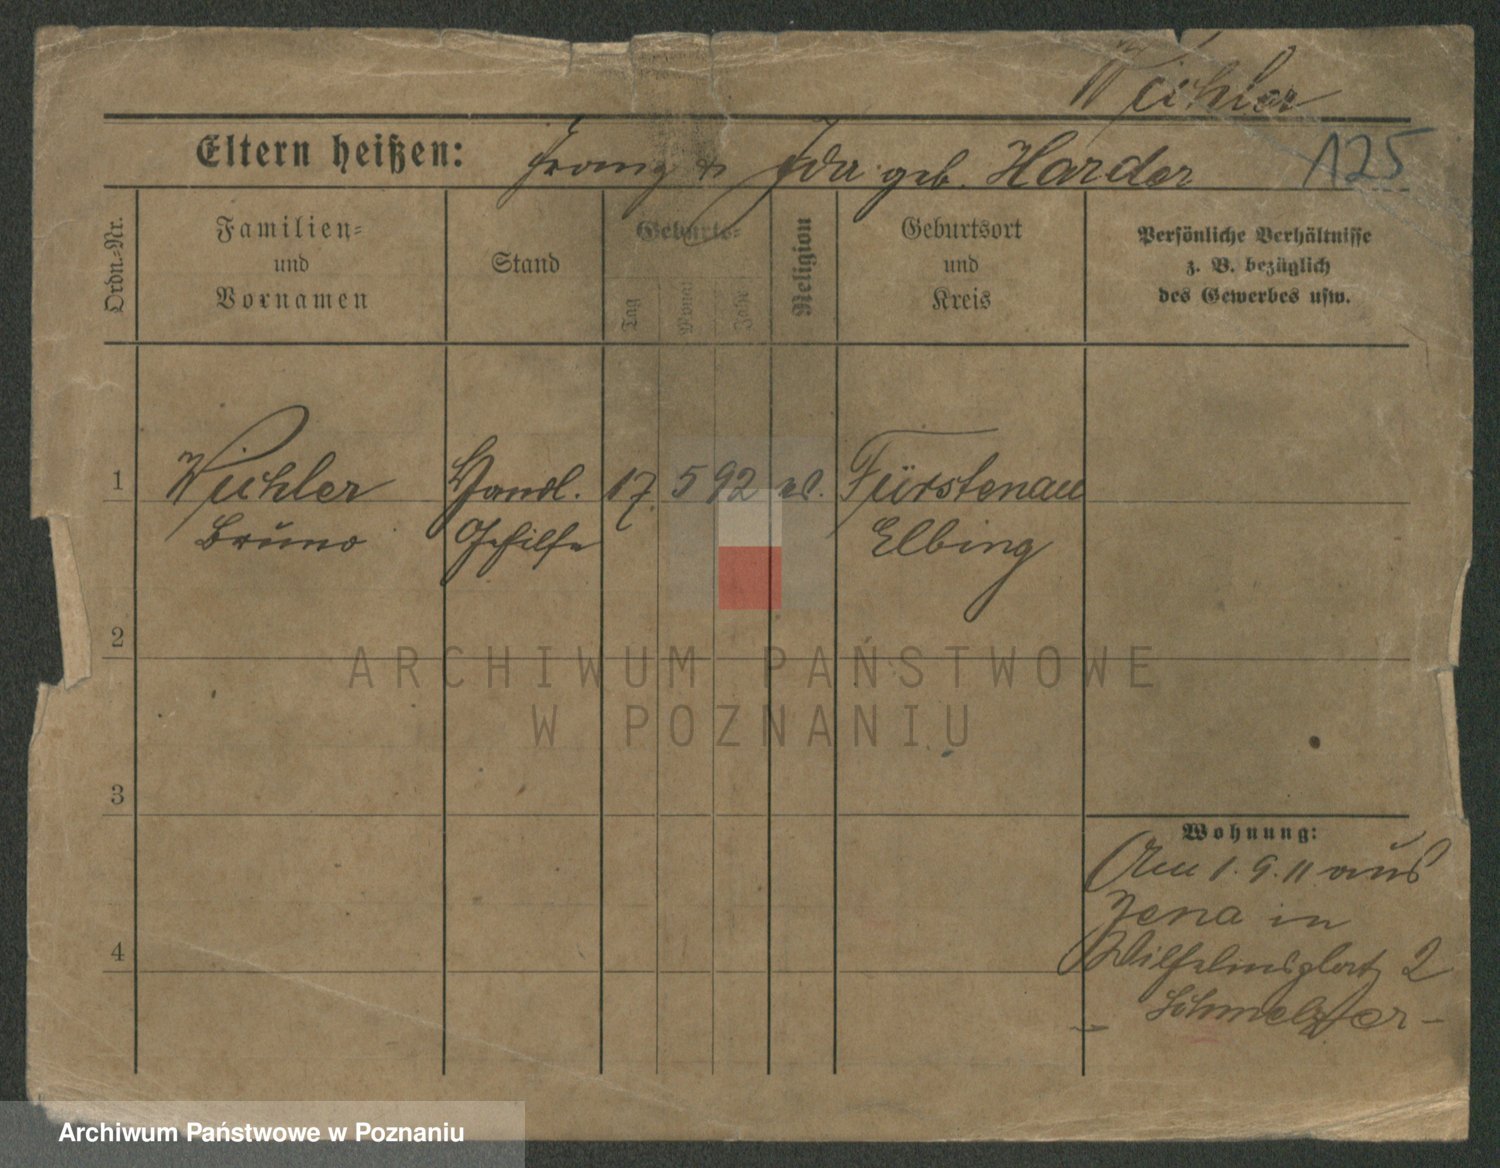 Wichler
Eltern heißen: Franz u Ida geb. Harder 125
Ordn.=Nr.
Familien=
und
Vornamen
Stand
Geburts=
Tag
Monat
Jahr
Religion
Geburtsort
und
Kreis
Persönliche Verhältnisse
z. B. bezüglich
des Gewerbes usw.
1 Wichler Handl. 17. 5 92 ev. Fürstenau
Bruno Gehilfe Elbing
2
3
4
Wohnung:
Am 1.9.11 aus
Jena in
Wilhelmsplatz 2
– Schmelzer –
ARCHIWUM PAŃSTWOWE
W POZNANIU
Archiwum Państwowe w Poznaniu